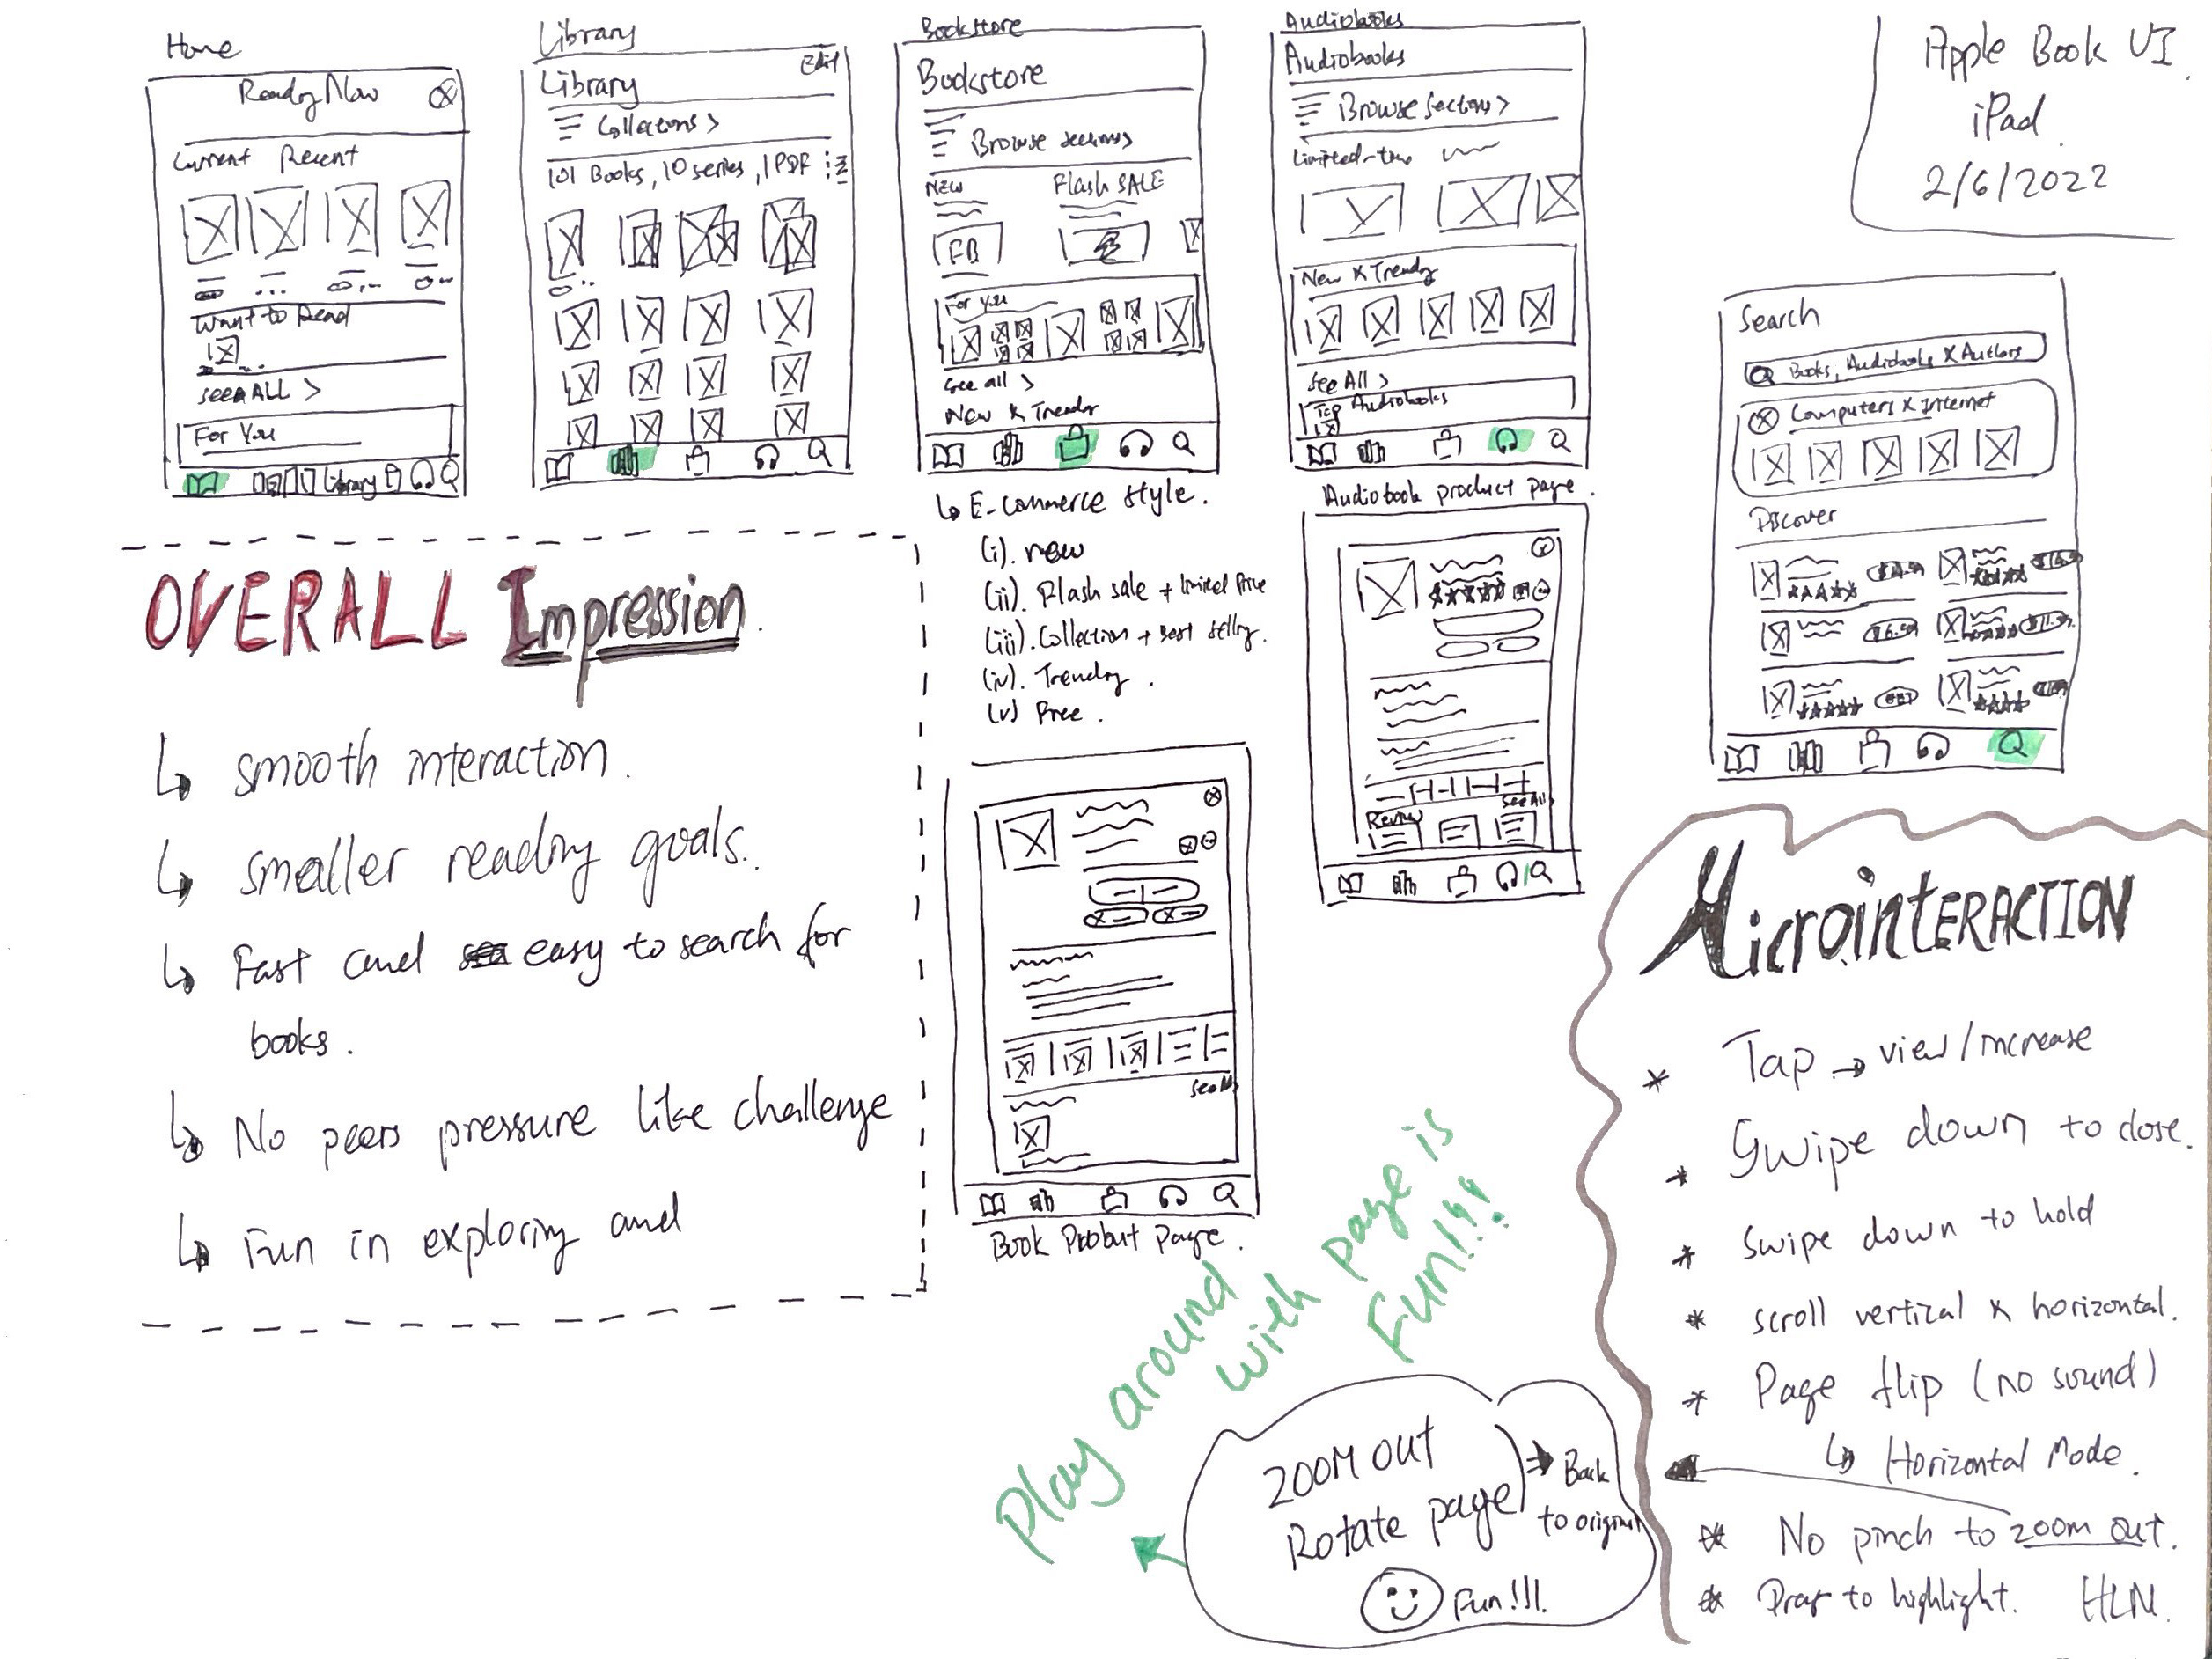 Home
Reading Now
Current Recent
Want to Read
See ALL >
For You
Library
Library
Edit
Library
Collections >
101 Books, 10 series, 1 PDF
Bookstore
Bookstore
Browse sections
NEW Flash SALE
For You
See all >
New & Trendy
↳ E-commerce style.
(i). new
(ii). Flash sale + limited Price
(iii). Collection + Best selling.
(iv). Trendy.
(v) Free.
Audiobooks
Audiobooks
Browse Sections >
Limited-time
New & Trendy
See All >
Top Audiobooks
Audiobook product page.
See All
Review
Apple Book UI
iPad
2/6/2022
Search
Books, Audiobooks & Authors
Computers & Internet
Discover
OVERALL Impression.
↳ smooth interaction.
↳ smaller reading goals.
↳ Fast and easy to search for
books.
↳ No peers pressure like challenge
↳ Fun in exploring and
See All
Book Product Page.
Play around
with page is
Fun!!!
ZOOM OUT
Rotate page
→ Back
to original
Fun!!!
MicroinTERACTION
* Tap → view/increase
* Swipe down to close.
* Swipe down to hold
* scroll vertical & horizontal.
* Page flip (no sound)
↳ Horizontal Mode.
* No pinch to zoom out.
* Drag to highlight. HLN.